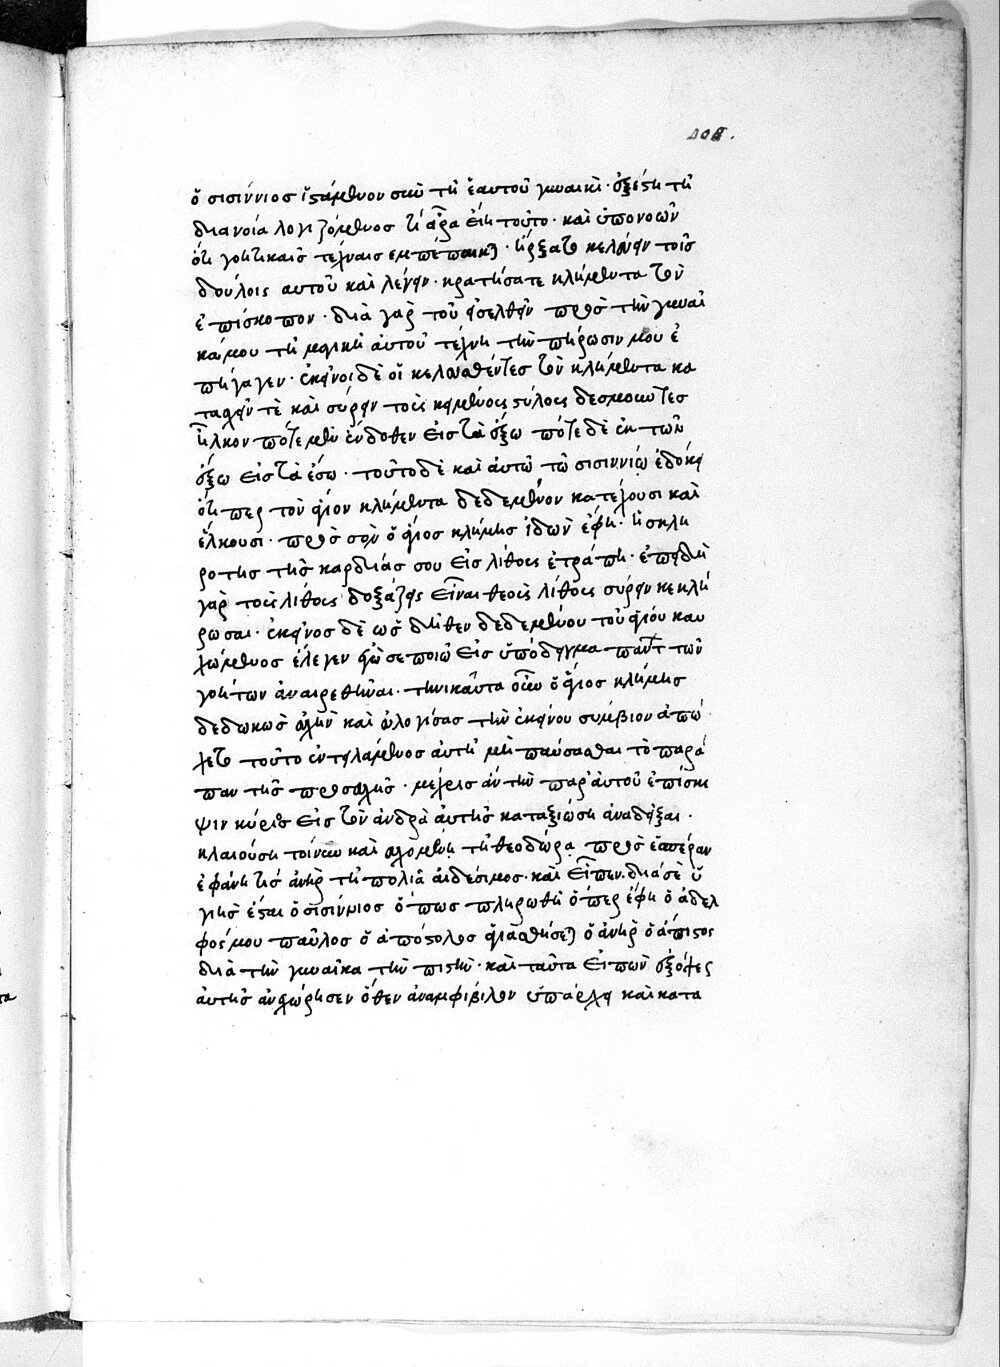 ὁ σισίννιος ἱστάμενον σὺν τῇ ἑαυτοῦ γυναικὶ · ἐξέστη τῇ
διανοία λογιζόμενος τί ἄρα εἴη τοῦτο · καὶ ὑπονοῶν
ὅτι γοητικαῖς τέχναις ἐμπέπαικται · ἤρξατο κελεύειν τοῖς
δούλοις αυτοῦ καὶ λέγειν · κρατήσατε κλήμεντα τὸν
ἐπίσκοπον · διὰ γὰρ τοῦ εἰσελθεῖν πρὸς τὴν γυναῖ
κά μου τῇ μαγικῇ αὐτοῦ τέχνη τὴν πήρωσιν μου ἐ
πήγαγεν · ἐκεῖνοι δὲ οἱ κελευσθέντες τὸν κλήμεντα κα
τασχεῖν τὲ καὶ σύρειν τοὺς κειμένους στύλους δεσμοῦντες
εἷλκον πότε μὲν ἔνδοθεν εἰς τὰ ἔξω πότε δὲ ἐκ τῶν
ἔξω εἰς τὰ ἔσω · τοῦτο δὲ καὶ αὐτῶ τῶ σισιννίω ἐδόκει
ὅτιπερ τὸν ἅγιον κλήμεντα δεδεμένον κατέχουσι καὶ
ἕλκουσι · πρὸς ὃν ὁ ἅγιος κλήμης ἰδὼν ἔφη · ἡ σκλη
ρότης τῆς καρδίας σου εἰς λίθους ἐτράπη · ἐπειδὴ
γὰρ τοὺς λίθους δοξάζεις εἶναι θεοὺς λίθους σύρειν κεκλή
ρωσαι · ἐκεῖνος δὲ ὡς δῆθεν δεδεμένου τοῦ ἁγίου καυ
χώμενος ἔλεγεν ἐγώ σε ποιῶ εἰς ὑπόδειγμα πάντων τῶν
γοήτων ἀναιρεθῆναι · τηνικαῦτα οὖν ὁ ἅγιος κλήμης
δεδωκὼς εὐχὴν καὶ εὐλογήσας τὴν ἐκείνου σύμβιον ἀπώ
χετο τοῦτο ἐντειλάμενος αὐτῇ μὴ παύσασθαι τὸ παρά
παν τῆς προσευχῆς · μέχρις ἂν τὴν παρ' αὐτοῦ ἐπίσκε
ψιν κύριος εἰς τὸν ἄνδρα αὐτῆς καταξιώση ἀναδεῖξαι ·
κλαιούση τοίνυν καὶ εὐχομένη τῇ θεοδώρα πρὸς ἑσπέραν
ἐφάνη τίς ἀνὴρ τῇ πολιᾶ αἰδέσιμος · καὶ εἶπεν · διὰ σὲ ὑ
γιὴς ἔσται ὁ σισίννιος ὅπως πληρωθῇ ὅπερ ἔφη ὁ ἀδελ
φός μου παῦλος ὁ ἀπόστολος ἁγιασθήσεται ὁ ἀνὴρ ὁ ἄπιστος
διὰ τὴν γυναῖκα τὴν πιστὴν · καὶ ταῦτα εἰπὼν ἐξ ὄψεως
αὐτῆς ἀνεχώρησεν ὅθεν ἀναμφίβολον ὑπάρχει καὶ κατα